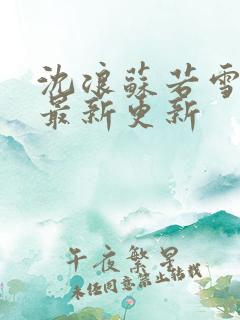 沈浪蘇若雪
最新更新
午夜繁星
未经同意禁止转载